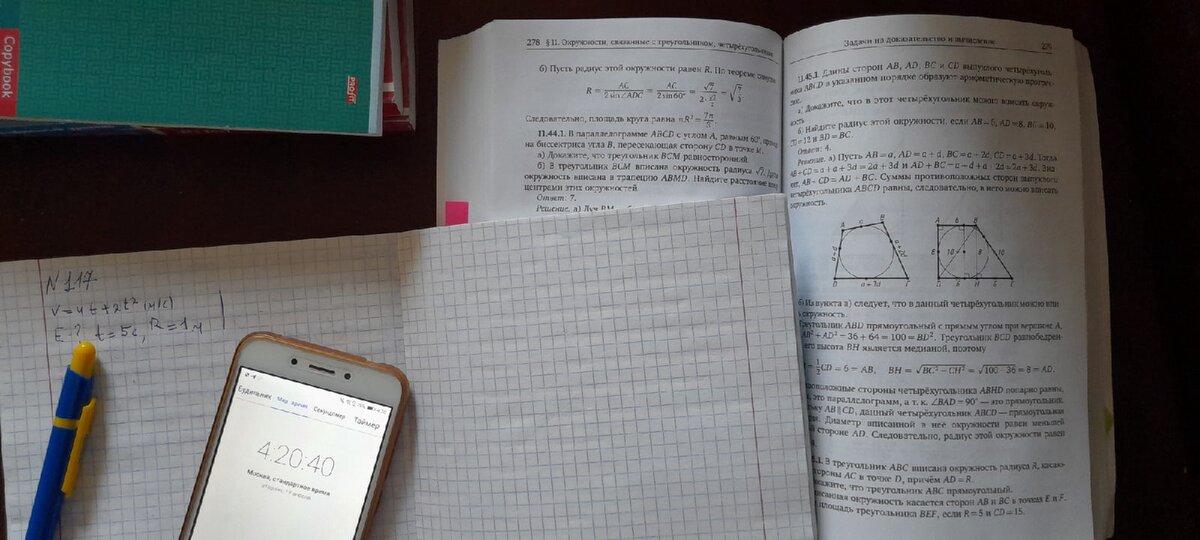 Copybook
PROFIT
278 § 11. Окружности, связанные с треугольником, четырёхугольником
б) Пусть радиус этой окружности равен R. По теореме синусов
R = AC / 2 sin∠ADC = AC / 2 sin 60° = √7 / 2·√3/2 = √7/3
Следовательно, площадь круга равна πR² = 7π/3.
11.44.1. В параллелограмме ABCD с углом A, равным 60°,
на биссектриса угла B, пересекающая сторону CD в точке M.
а) Докажите, что треугольник BCM равносторонний.
б) В треугольник BCM вписана окружность радиуса √7.
окружность вписана в трапецию ABMD. Найдите расстояние между
центрами этих окружностей.
Ответ: 7.
Решение. а) Луч BM
Задачи на доказательство и вычисление 279
11.45.1. Длины сторон AB, AD, BC и CD выпуклого четырёхуголь-
ника ABCD в указанном порядке образуют арифметическую прогрес-
сию.
а) Докажите, что в этот четырёхугольник можно вписать окруж-
ность.
б) Найдите радиус этой окружности, если AB=6, AD=8, BC=10,
CD=12 и BD=BC.
Ответ: 4.
Решение. а) Пусть AB=a, AD=a+d, BC=a+2d, CD=a+3d. Тогда
AB+CD=a+a+3d=2a+3d и AD+BC=a+d+a+2d=2a+3d. Зна-
чит, AB+CD=AD+BC. Суммы противоположных сторон выпуклого
четырёхугольника ABCD равны, следовательно, в него можно вписать
окружность.
A a B
a+d a+2d
D a+3d C
A 6 B
E 10 8 10
D 6 H 6 C
б) Из пункта а) следует, что в данный четырёхугольник можно впи
окружность.
реугольник ABD прямоугольный с прямым углом при вершине A,
AB²+AD² = 36+64 = 100 = BD². Треугольник BCD равнобедрен-
его высота BH является медианой, поэтому
= 1/2 CD = 6 = AB, BH = √BC²−CH² = √100−36 = 8 = AD.
воположные стороны четырёхугольника ABHD попарно равны,
это параллелограмм, а т. к. ∠BAD = 90° — это прямоугольник.
ому AB ∥ CD, данный четырёхугольник ABCD — прямоугольная
Диаметр вписанной в неё окружности равен меньшей
стороне AD. Следовательно, радиус этой окружности равен
1. В треугольник ABC вписана окружность радиуса R, касаю-
стороны AC в точке D, причём AD = R.
окажите, что треугольник ABC прямоугольный.
писанная окружность касается сторон AB и BC в точках E и F.
площадь треугольника BEF, если R = 5 и CD = 15.
N 117
V=4t+2t² (м/с)
E-? t=5с, R=1м
Будильник Мир. время Секундомер Таймер
4:20:40
Москва, стандартное время